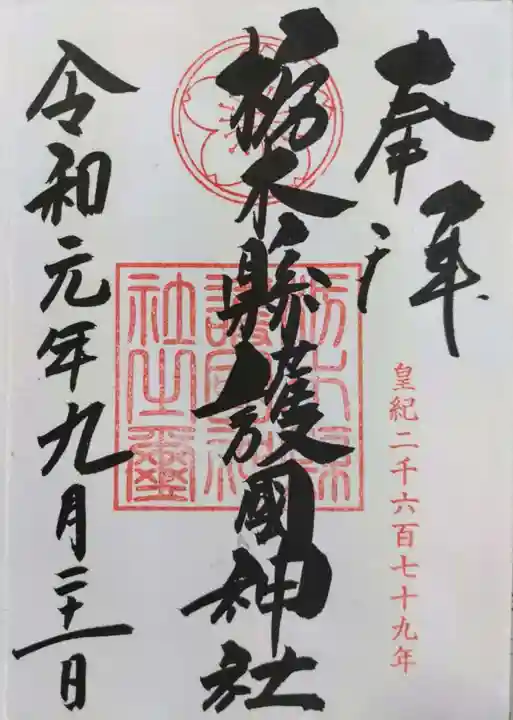 奉拝
皇紀二千六百七十九年
栃木縣護國神社
栃木縣護國神社之璽
令和元年九月二十一日